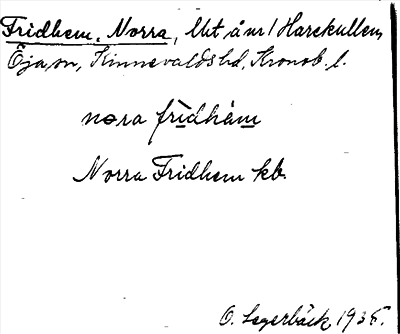 Fridhem, Norra, lht å nr 1 Harekullen,
Öja sn, Kinnevalds hd, Kronob. l.
nora fridhäm
Norra Fridhem kb.
O. Lagerbäck 1935.